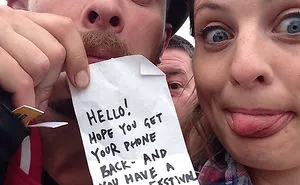 HELLO!
HOPE YOU GET
YOUR PHONE
BACK- AND
YOU HAVE A
FESTIVAL